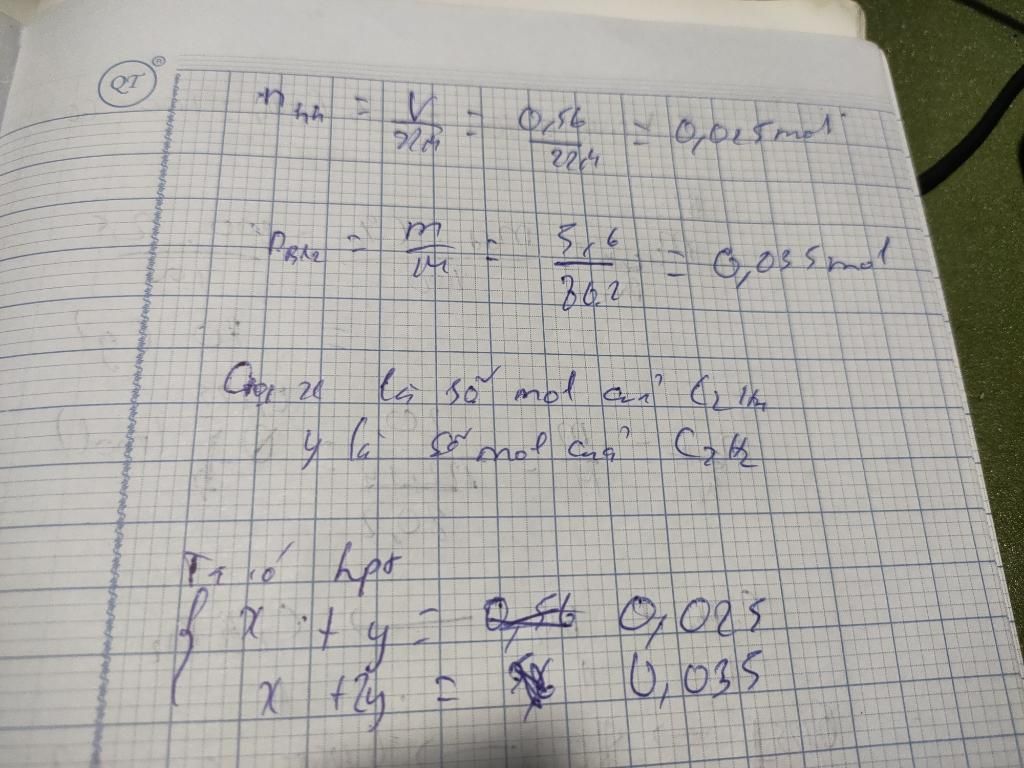 QI ®
n hh = V / 22,4 = 0,56 / 22,4 = 0,025 mol
n Br2 = m / M = 5,6 / 80.2 = 0,035 mol
Gọi x là số mol của C2H4
y là số mol của C2H2
Ta có hpt
{ x + y = 0,56 0,025
x + 2y = 0,035